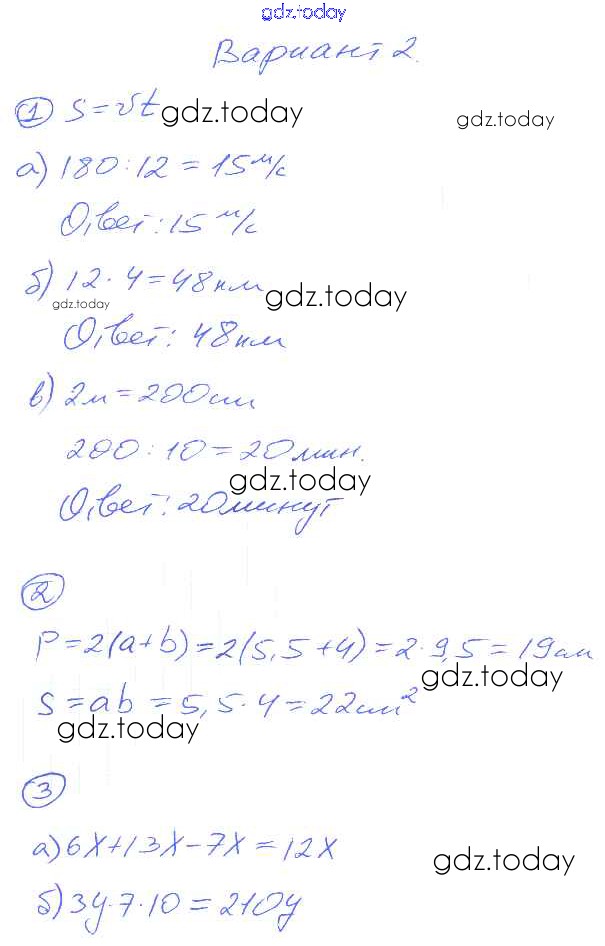 gdz.today
Вариант 2.
① S = vt gdz.today gdz.today
а) 180 : 12 = 15 м/с
Ответ: 15 м/с
б) 12 · 4 = 48 км gdz.today
gdz.today
Ответ: 48 км
в) 2м = 200 см
200 : 10 = 20 мин.
gdz.today
Ответ: 20 минут
②
P = 2(a+b) = 2(5,5+4) = 2·9,5 = 19 см
gdz.today
S = ab = 5,5·4 = 22 см²
gdz.today
③
а) 6x+13x-7x = 12x
gdz.today
б) 3y·7·10 = 210y